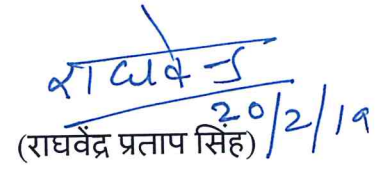 राघवेन्द्र
20/2/19
(राघवेंद्र प्रताप सिंह)